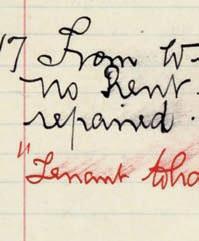 17 From W-
no Rent.
repaired.
"Tenant